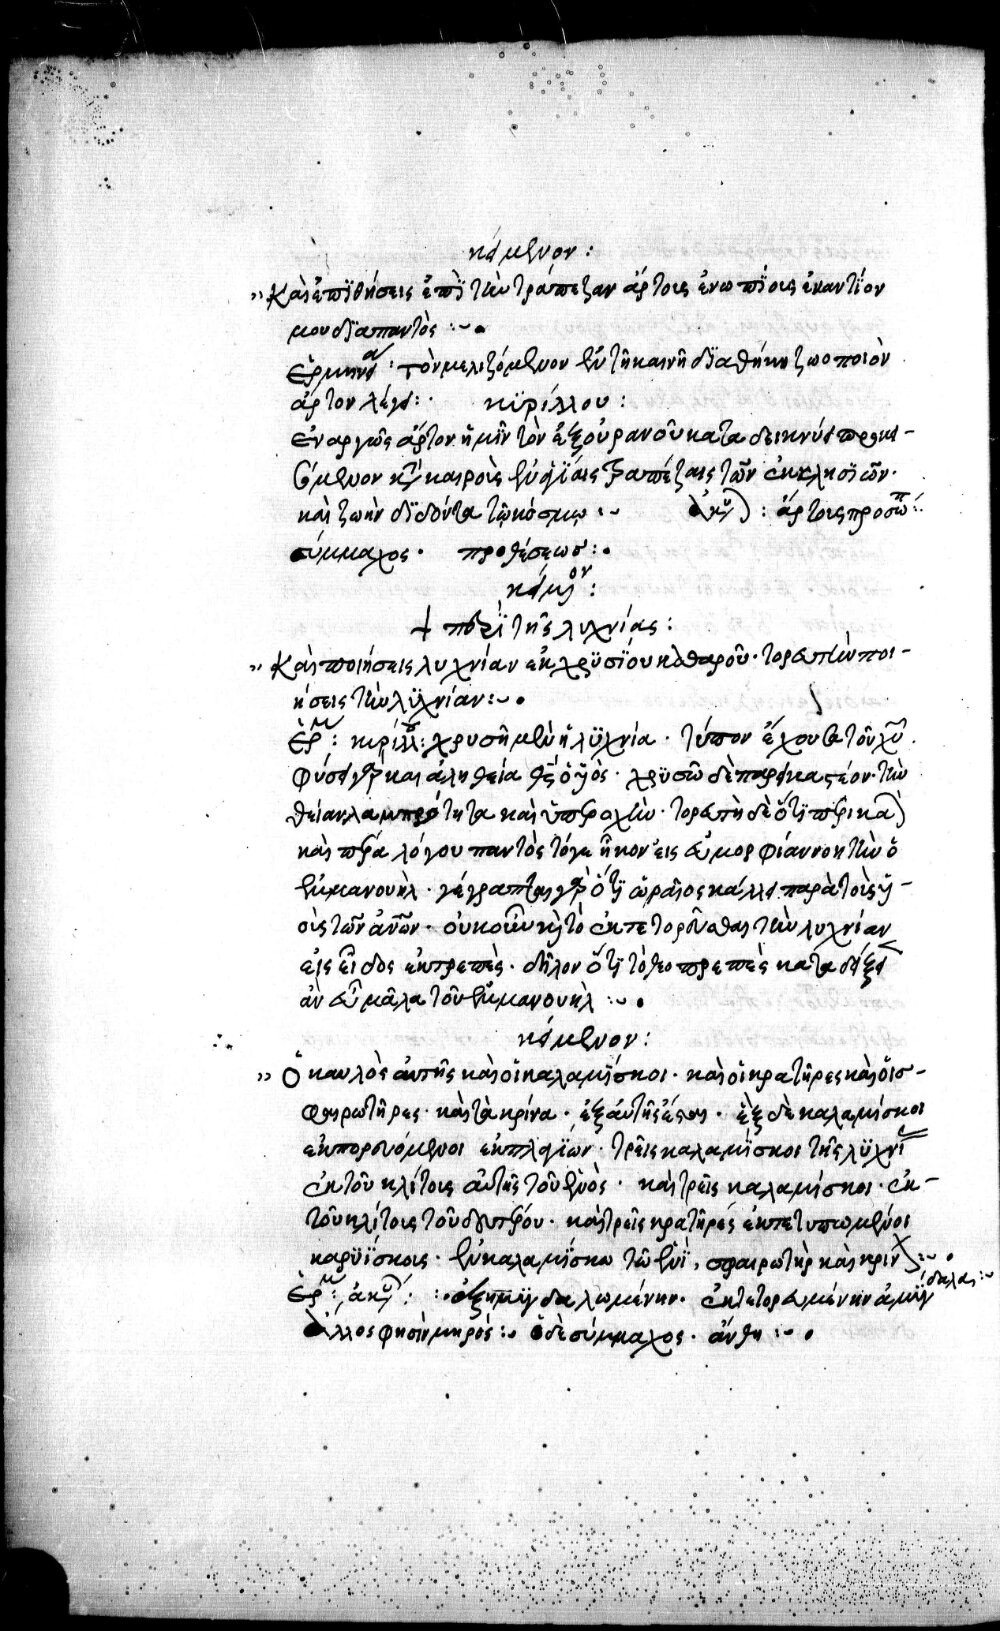 κείμενον:
"Καὶ ἐπϊθήσεις ἐπῒ τὴν τράπεζαν ἄρτους ἐνωπΐους ἐναντΐον
μου δϊαπαντὸς :~ •
Ἑρμηνεα· τὸν μελιζόμενον ἐν τῆ καινῆ δϊαθήκη ζωοποιὸν
ἄρτον λέγει: κϋρίλλου:
ἐναργῶς ἄρτον ἡμῖν τὸν ἐξ οὐρανοῦ καταδεικνύει προκεί-
μενον κατὰ καιροὺς ἐν ἁγΐαις τραπέζαις τῶν ἐκκλησϊῶν·
καὶ ζωὴν δϊδόντα τῶ κόσμω :~ ἀκυ : ἄρτους προσώπ:
σύμμαχος · προθέσεως : •
κείμον:
+ περῒ τῆς λυχνίας:
"Καὶ ποιήσεις λυχνίαν ἐκ χρϋσΐου καθαροῦ· τορευτὴν ποι-
ήσεις τὴν λϋχνίαν :~ •
Ἑρμ : κϋρίλλ: χρυσῆ μὲν ἡ λϋχνία · τύπον ἔχουσα τοῦ χυ
φύσει γὰρ καὶ ἀληθεία θς ὁ υἱός· χρϋσῶ δὲ παρεικαστέον τὴν
θείαν λαμπρότητα καὶ ὑπεροχὴν · τορευτὴ δὲ ὅτϊ
καὶ πέρα λόγου παντὸς τόγε ἧκον εἰς εὐμορφίαν νοητὴν ὁ
ἐμμανουήλ · γέγραπται γὰρ ὅτϊ ὡραῖος κάλλει παρὰ τοὺς υἱ-
οὺς τῶν ἀνων · οὐκοῦν καὶ τὸ ἐκτετορεῦσθαι τὴν λυχνίαν
εἰς εἶδος ἐκπρεπὲς · δῆλον ὅτϊ τὸ θεοπρεπὲς καταδείξει
ἂν εὖ μάλα τοῦ ἐμμανουήλ :~ •
κείμενον:
"Ὁ καυλὸς αὐτῆς καὶ οἱ καλαμΐσκοι · καὶ οἱ κρατῆρες καὶ οἱ σ-
φαιρωτῆρες · καὶ τὰ κρίνα · ἐξ αὐτῆς ἔσται · ἓξ δὲ καλαμίσκοι
ἐκπορευόμενοι ἐκ πλαγΐων · τρεῖς καλαμΐσκοι τῆς λϋχνί
ἐκ τοῦ κλίτους αὐτῆς τοῦ ἑνὸς · καὶ τρεῖς καλαμίσκοι · ἐκ-
τοῦ κλίτους τοῦ δευτέρου · καὶ τρεῖς κρατῆρες ἐκτετυπωμένοι
καρϋΐσκους · ἐν καλαμΐσκω τῶ ἑνῒ , σφαιρωτὴρ καὶ κρίν :~ •
Ἑρμ : ἀκυ : ἐξημϋγδαλωμένην· ἐκτετορευμένην ἀμϋγδαλας:~
ἄλλος φησὶν μηρὸς :~ ὁ δὲ σύμμαχος · ἄνθη :~ •